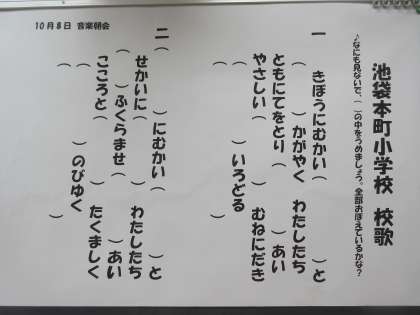 池袋本町小学校 校歌
♪なにも見ないで、( )の中をうめましょう。全部おぼえているかな？
一 きぼうにむかい( )と
( )かがやく わたしたち
ともにてをとり( )あい
やさしい( ) むねにだき
( )いろどる
( )
二 ( )にむかい( )と
せかいに( ) わたしたち
( )ふくらませ( )あい
こころと( ) たくましく
( )のびゆく
( )
10月8日 音楽朝会